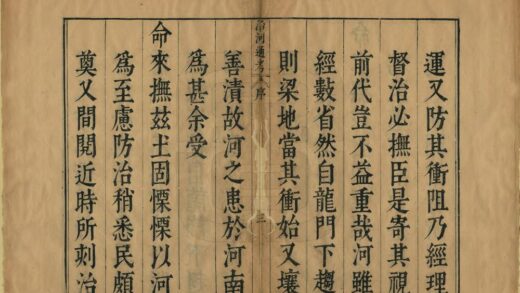 運又防其衝阻乃經理
督治必撫臣是寄其視
前代豈不益重哉河雖
經數省然自龍門下趨
則梁地當其衝始又壤
治河通考 序 三
善漬故河之患於河南
爲甚余受
命來撫茲土固慄慄以河
爲至慮防治稍悉民頗
奠又間閱近時所刻治